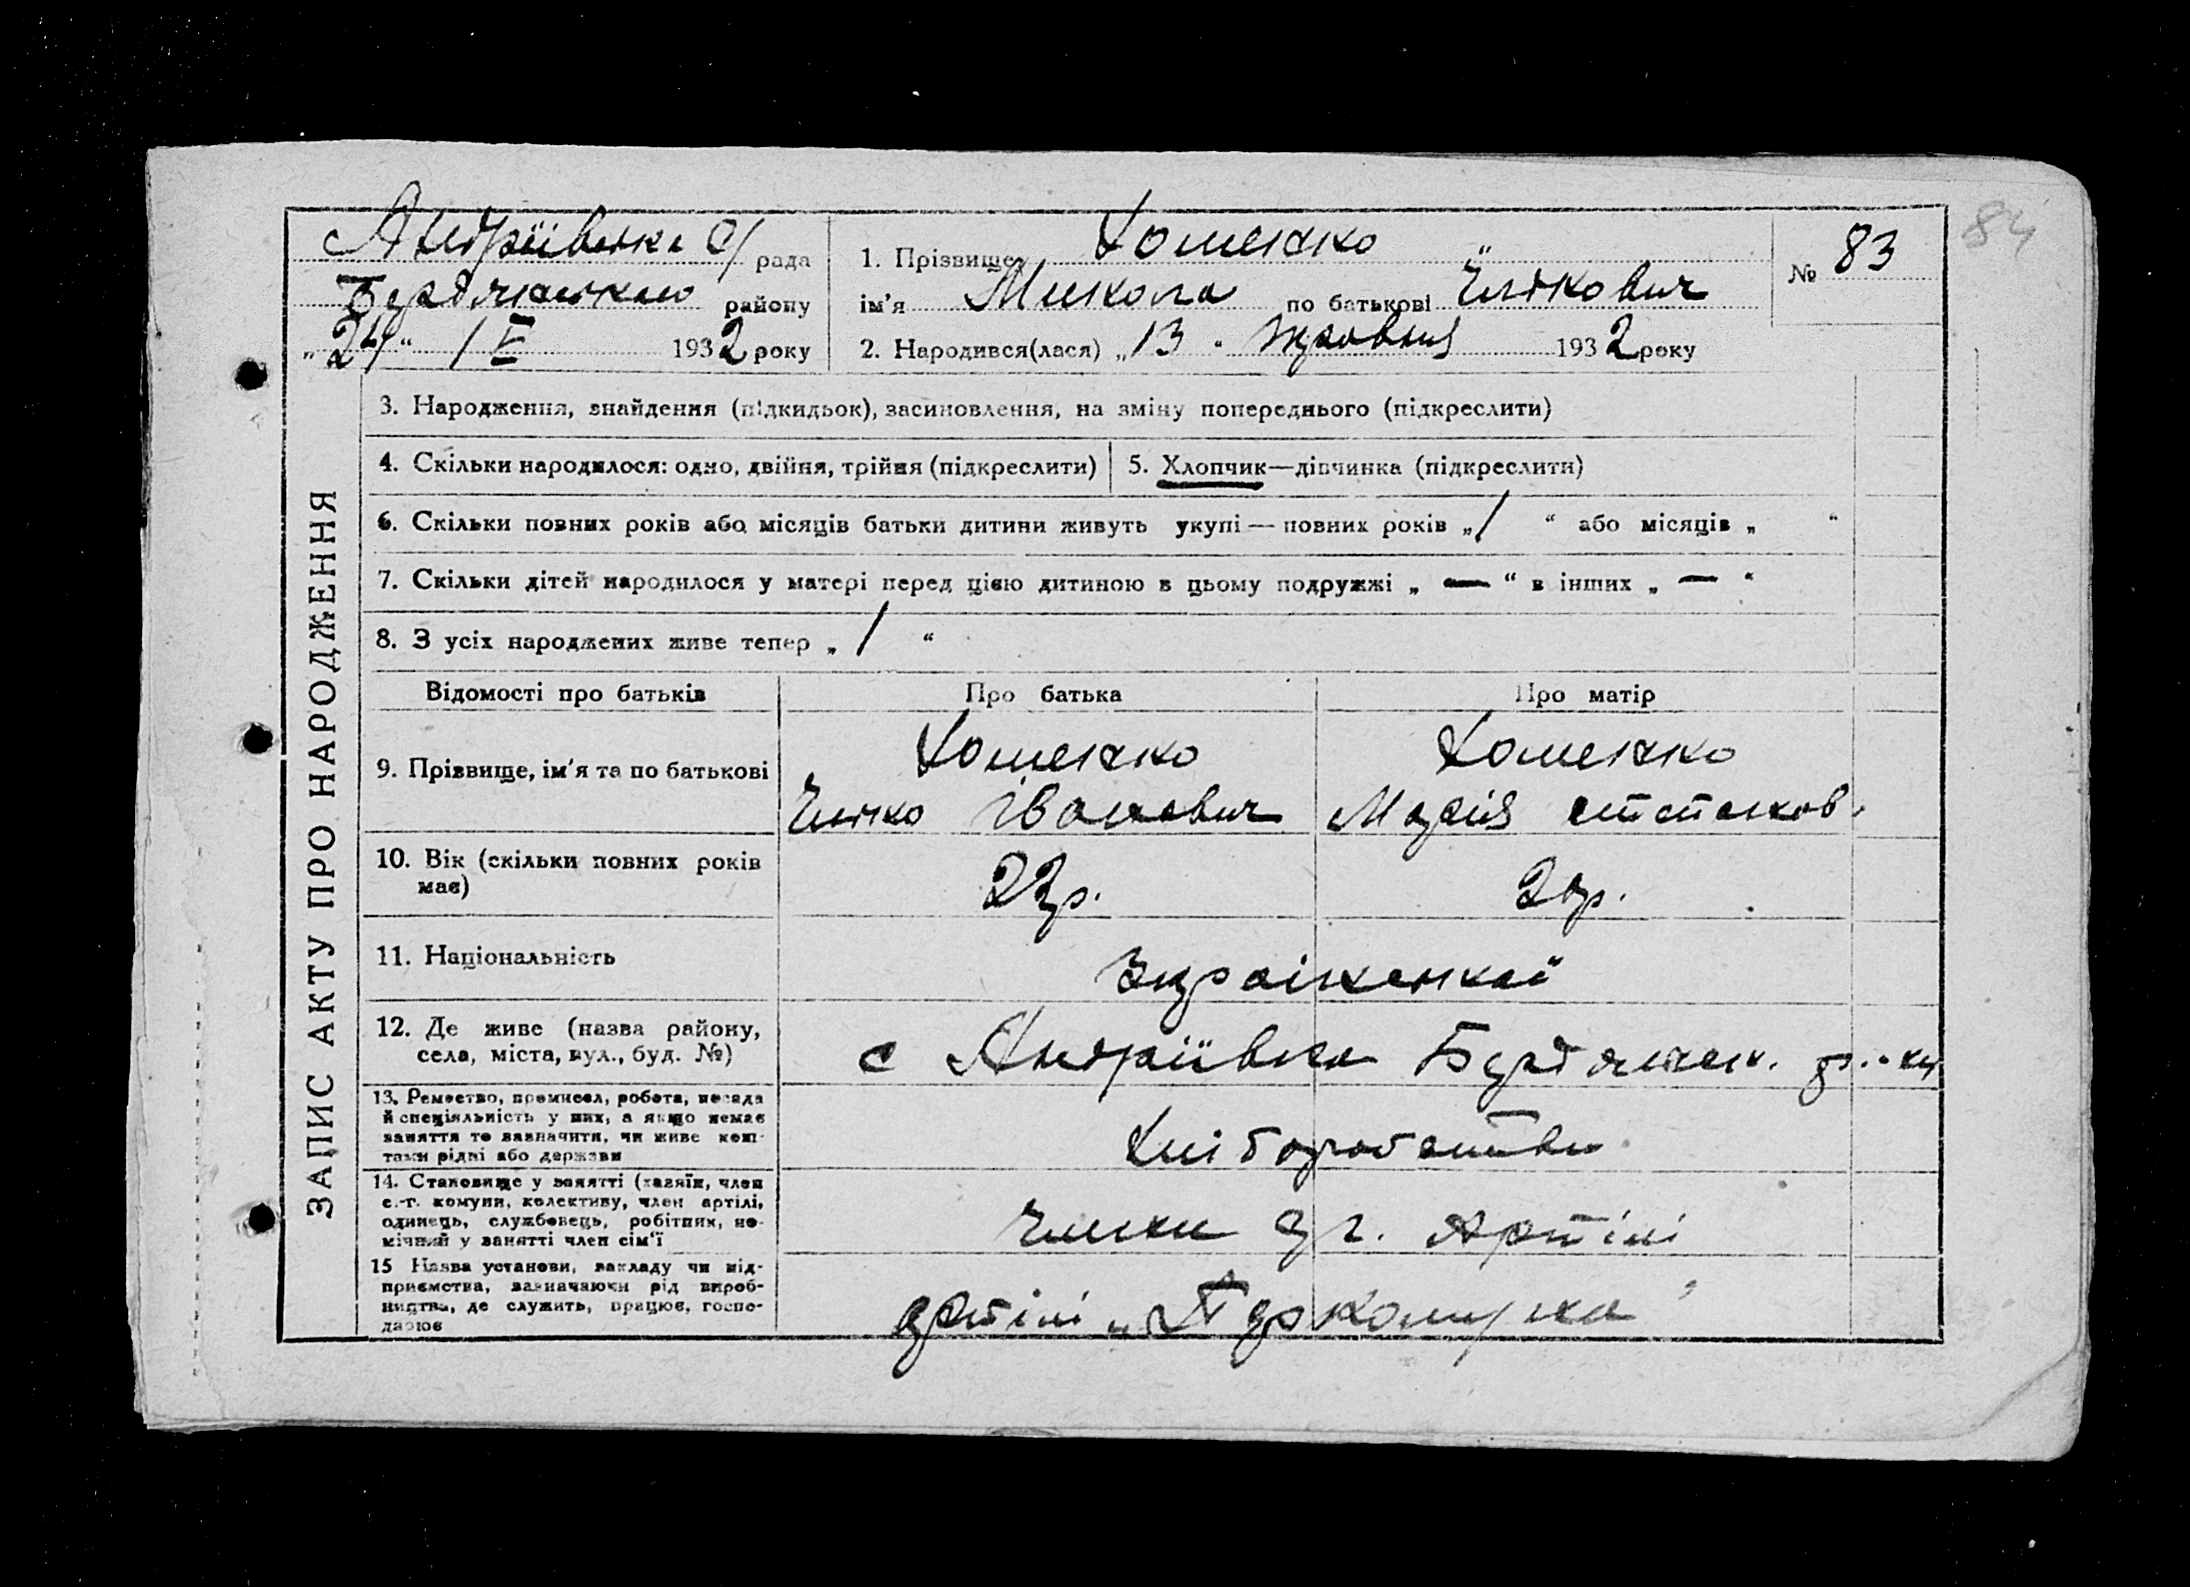 Андріївська С/рада
Бердянського району
„24“ IV 1932 року
1. Прізвище Хоменко
ім'я Микола по батькові
№ 83
84
2. Народився(лася) „13“ 1932 року
ЗАПИС АКТУ ПРО НАРОДЖЕННЯ
3. Народження, знайдення (підкидьок), засиновлення, на зміну попереднього (підкреслити)
4. Скільки народилося: одно, двійня, трійня (підкреслити)
5. Хлопчик—дівчинка (підкреслити)
6. Скільки повних років або місяців батьки дитини живуть укупі — повних років „1“ або місяців „ “
7. Скільки дітей народилося у матері перед цією дитиною в цьому подружжі „—“ в інших „—“
8. З усіх народжених живе тепер „1“
Відомості про батьків
Про батька
Про матір
9. Прізвище, ім'я та по батькові
Хоменко
Іванович
Хоменко
Марія Степанов.
10. Вік (скільки повних років
має)
23р.
20р.
11. Національність
Українська
12. Де живе (назва району,
села, міста, вул., буд. №)
с Андріївка Бердянськ. р.-ну
13. Ремество, промисел, робота, посада
й спеціяльність у них, а якщо немає
заняття то зазначити, чи живе кош-
тами рідні або держави
Хліборобство
14. Становище у занятті (хазяїн, член
с.-г. комуни, колективу, член артілі,
одинець, службовець, робітник, по-
мічний у занятті член сім'ї
Члени Артілі
15 Назва установи, закладу чи під-
приємства, зазначаючи рід вироб-
ництва, де служить, працює, госпо-
дарює
артілі „Паркомуна“